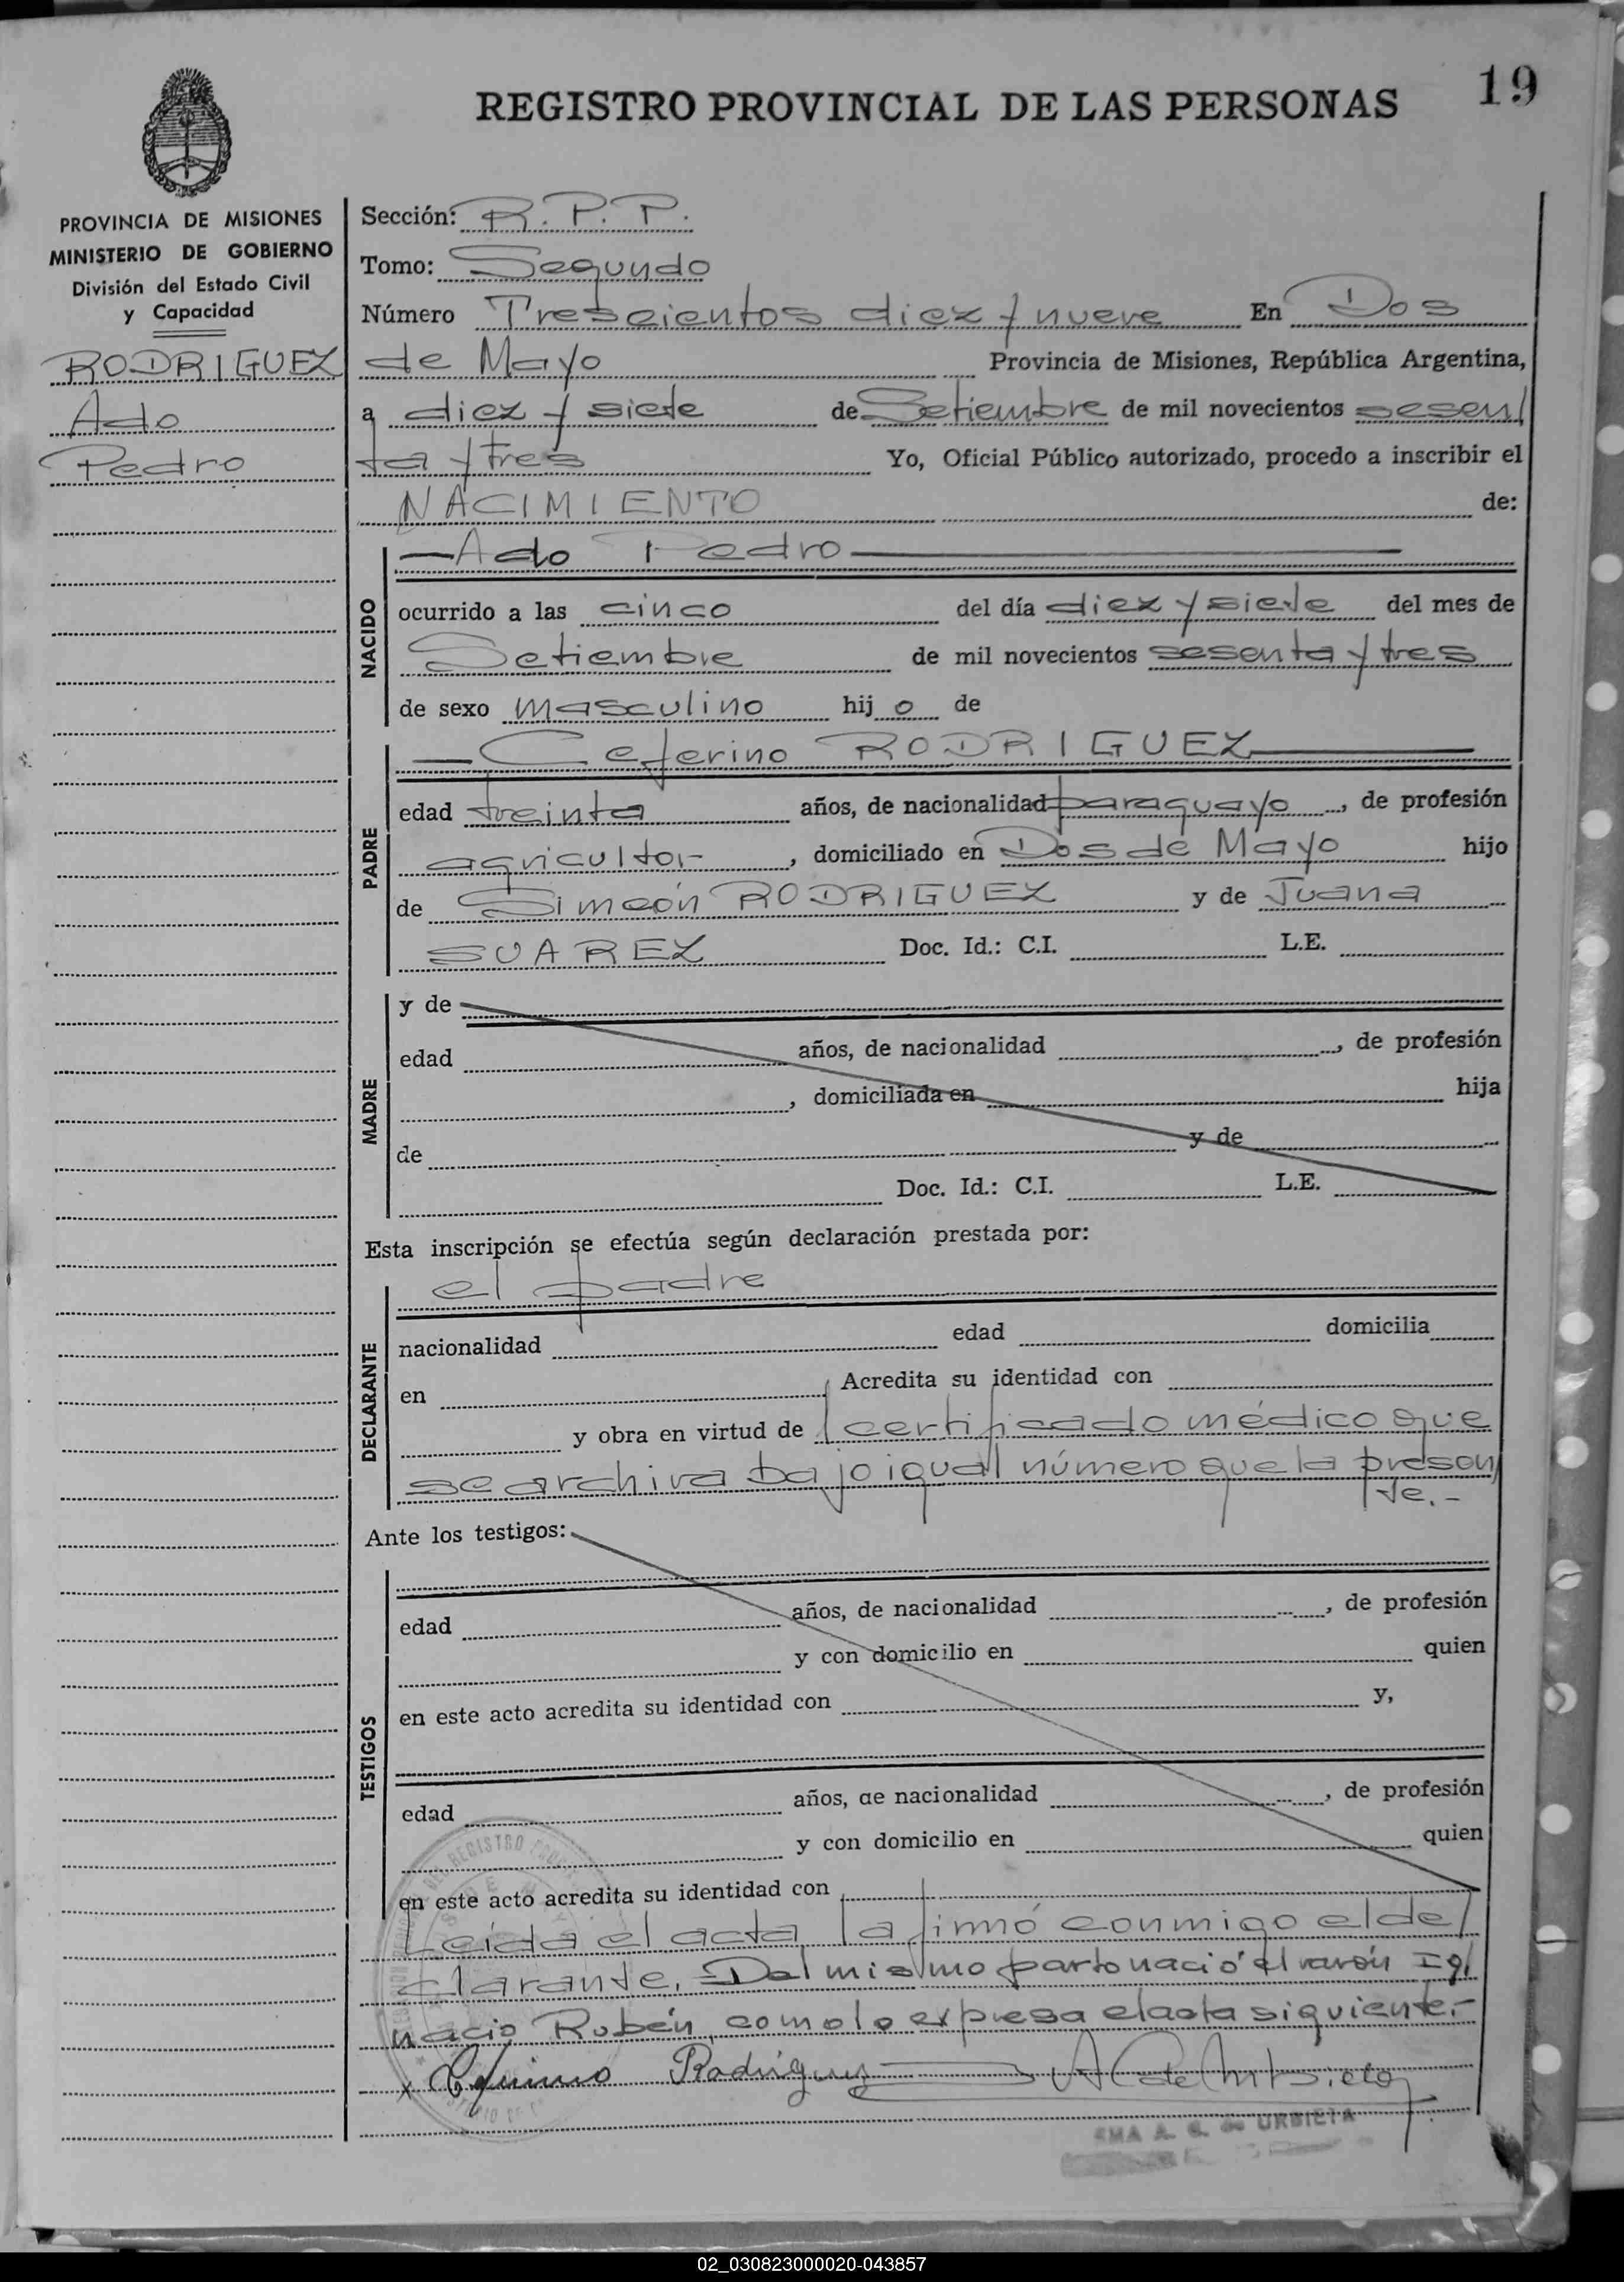 19
REGISTRO PROVINCIAL DE LAS PERSONAS
PROVINCIA DE MISIONES
MINISTERIO DE GOBIERNO
División del Estado Civil
y Capacidad
RODRIGUEZ
Ado
Pedro
Sección: R. P. P.
Tomo: Segundo
Número Trescientos diez y nueve En Dos
de Mayo Provincia de Misiones, República Argentina,
a diez y siete de Setiembre de mil novecientos sesen
ta y tres Yo, Oficial Público autorizado, procedo a inscribir el
NACIMIENTO de:
NACIDO
— Ado Pedro —
ocurrido a las cinco del día diez y siete del mes de
Setiembre de mil novecientos sesenta y tres
de sexo masculino hijo de
PADRE
— Ceferino RODRIGUEZ —
edad treinta años, de nacionalidad paraguayo, de profesión
agricultor, domiciliado en Dos de Mayo hijo
de Simeón RODRIGUEZ y de Juana
SUAREZ Doc. Id.: C.I. L.E.
MADRE
y de
edad años, de nacionalidad , de profesión
, domiciliada en hija
de y de
Doc. Id.: C.I. L.E.
Esta inscripción se efectúa según declaración prestada por:
DECLARANTE
el padre
nacionalidad edad domicilia
en Acredita su identidad con
y obra en virtud de certificado médico que
se archiva bajo igual número que la presen
te.-
Ante los testigos:
TESTIGOS
edad años, de nacionalidad , de profesión
y con domicilio en quien
en este acto acredita su identidad con y,
edad años, de nacionalidad , de profesión
y con domicilio en quien
en este acto acredita su identidad con
Leída el acta la firmó conmigo el de
clarante. Del mismo parto nació el varón Ig
nacio Rubén, como lo expresa el acta siguiente.-
x Ceferino Rodriguez
A. G. de URBIETA
02_030823000020-043857